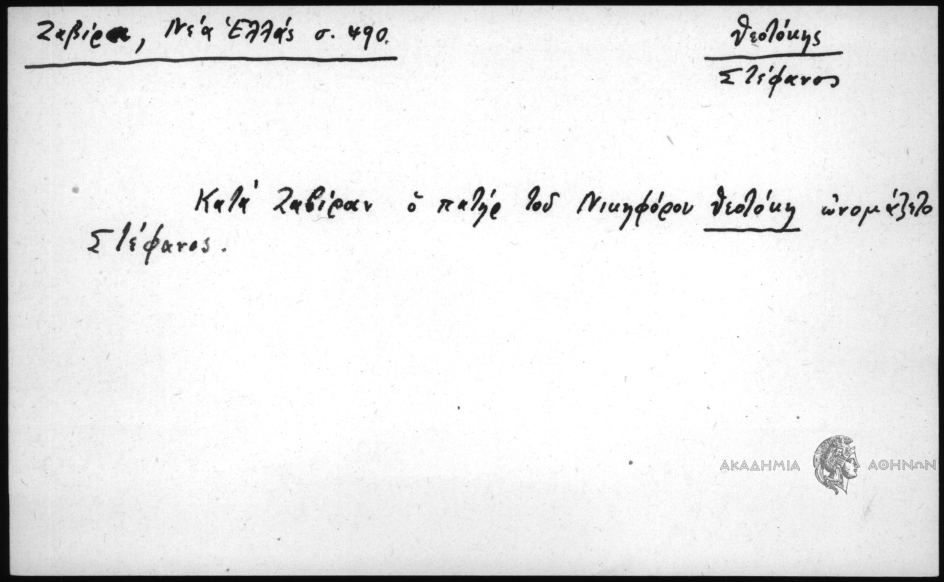 Ζαβίρα, Νέα Ἑλλάς σ. 490.
Θεοτόκης
Στέφανος
Κατά Ζαβίραν ὁ πατήρ τοῦ Νικηφόρου Θεοτόκη ὠνομάζετο
Στέφανος.
ΑΚΑΔΗΜΙΑ ΑΘΗΝΩΝ